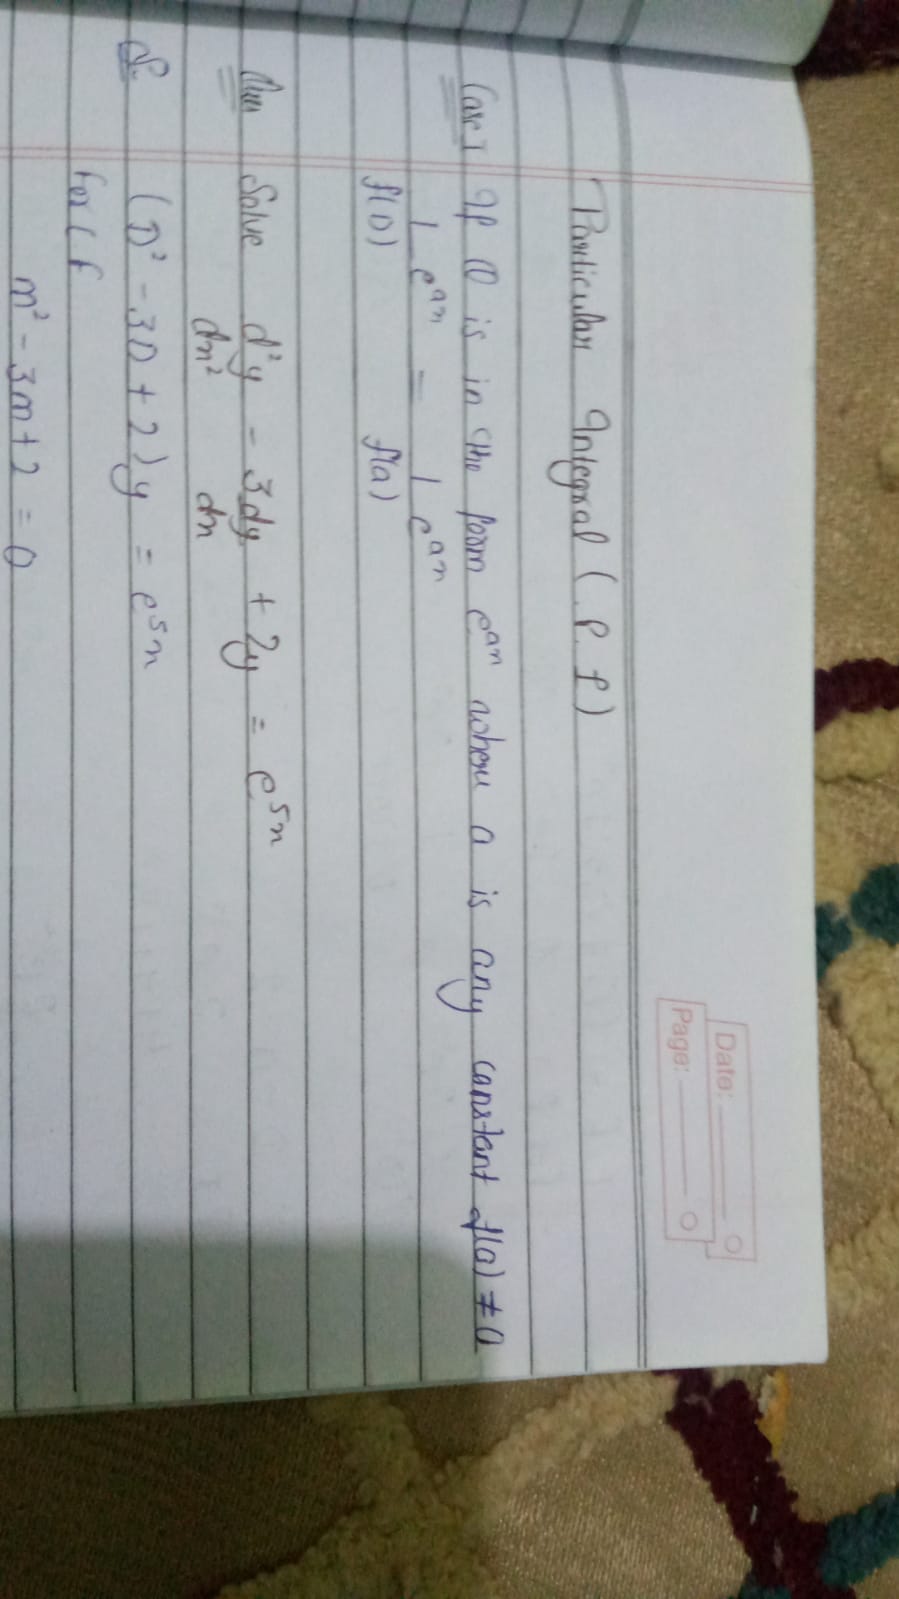 Date:
Page:
Particular Integral (P.I)
Case I If Q is in the form e^{ax} where a is any constant f(a) ≠ 0
1/f(D) e^{ax} = 1/f(a) e^{ax}
Ques Solve d²y/dx² - 3dy/dx + 2y = e^{5x}
S. (D² - 3D + 2)y = e^{5x}
for C.F
m² - 3m + 2 = 0